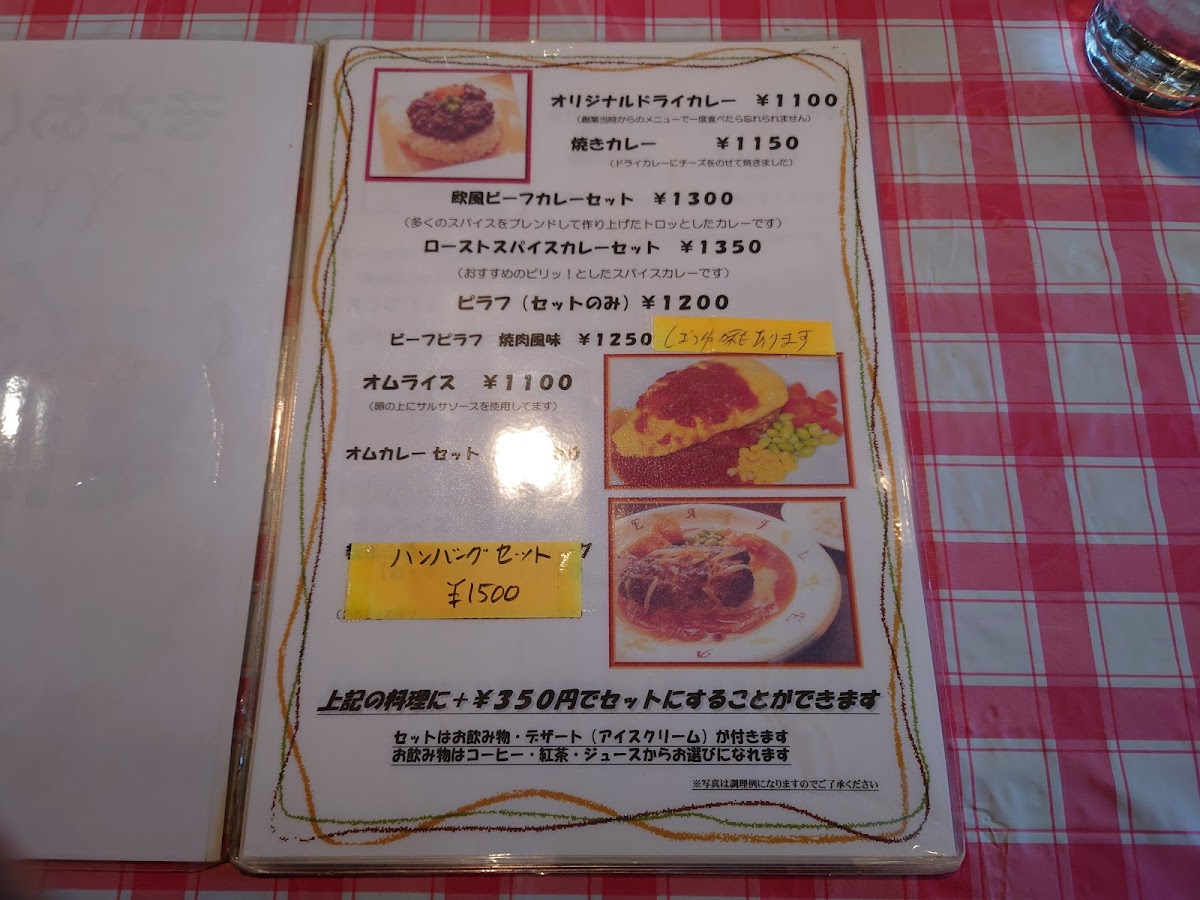 オリジナルドライカレー ￥1100
(創業当時からのメニューで一度食べたら忘れられません)
焼きカレー ￥1150
(ドライカレーにチーズをのせて焼きました)
欧風ビーフカレーセット ￥1300
(多くのスパイスをブレンドして作り上げたトロッとしたカレーです)
ローストスパイスカレーセット ￥1350
(おすすめのピリッ！としたスパイスカレーです)
ピラフ(セットのみ)￥1200
ビーフピラフ 焼肉風味 ￥1250
しょうゆ味もあります
オムライス ￥1100
(卵の上にサルサソースを使用してます)
オムカレーセット
ハンバーグセット
¥1500
上記の料理に＋￥350円でセットにすることができます
セットはお飲み物・デザート(アイスクリーム)が付きます
お飲み物はコーヒー・紅茶・ジュースからお選びになれます
※写真は調理例になりますのでご了承ください